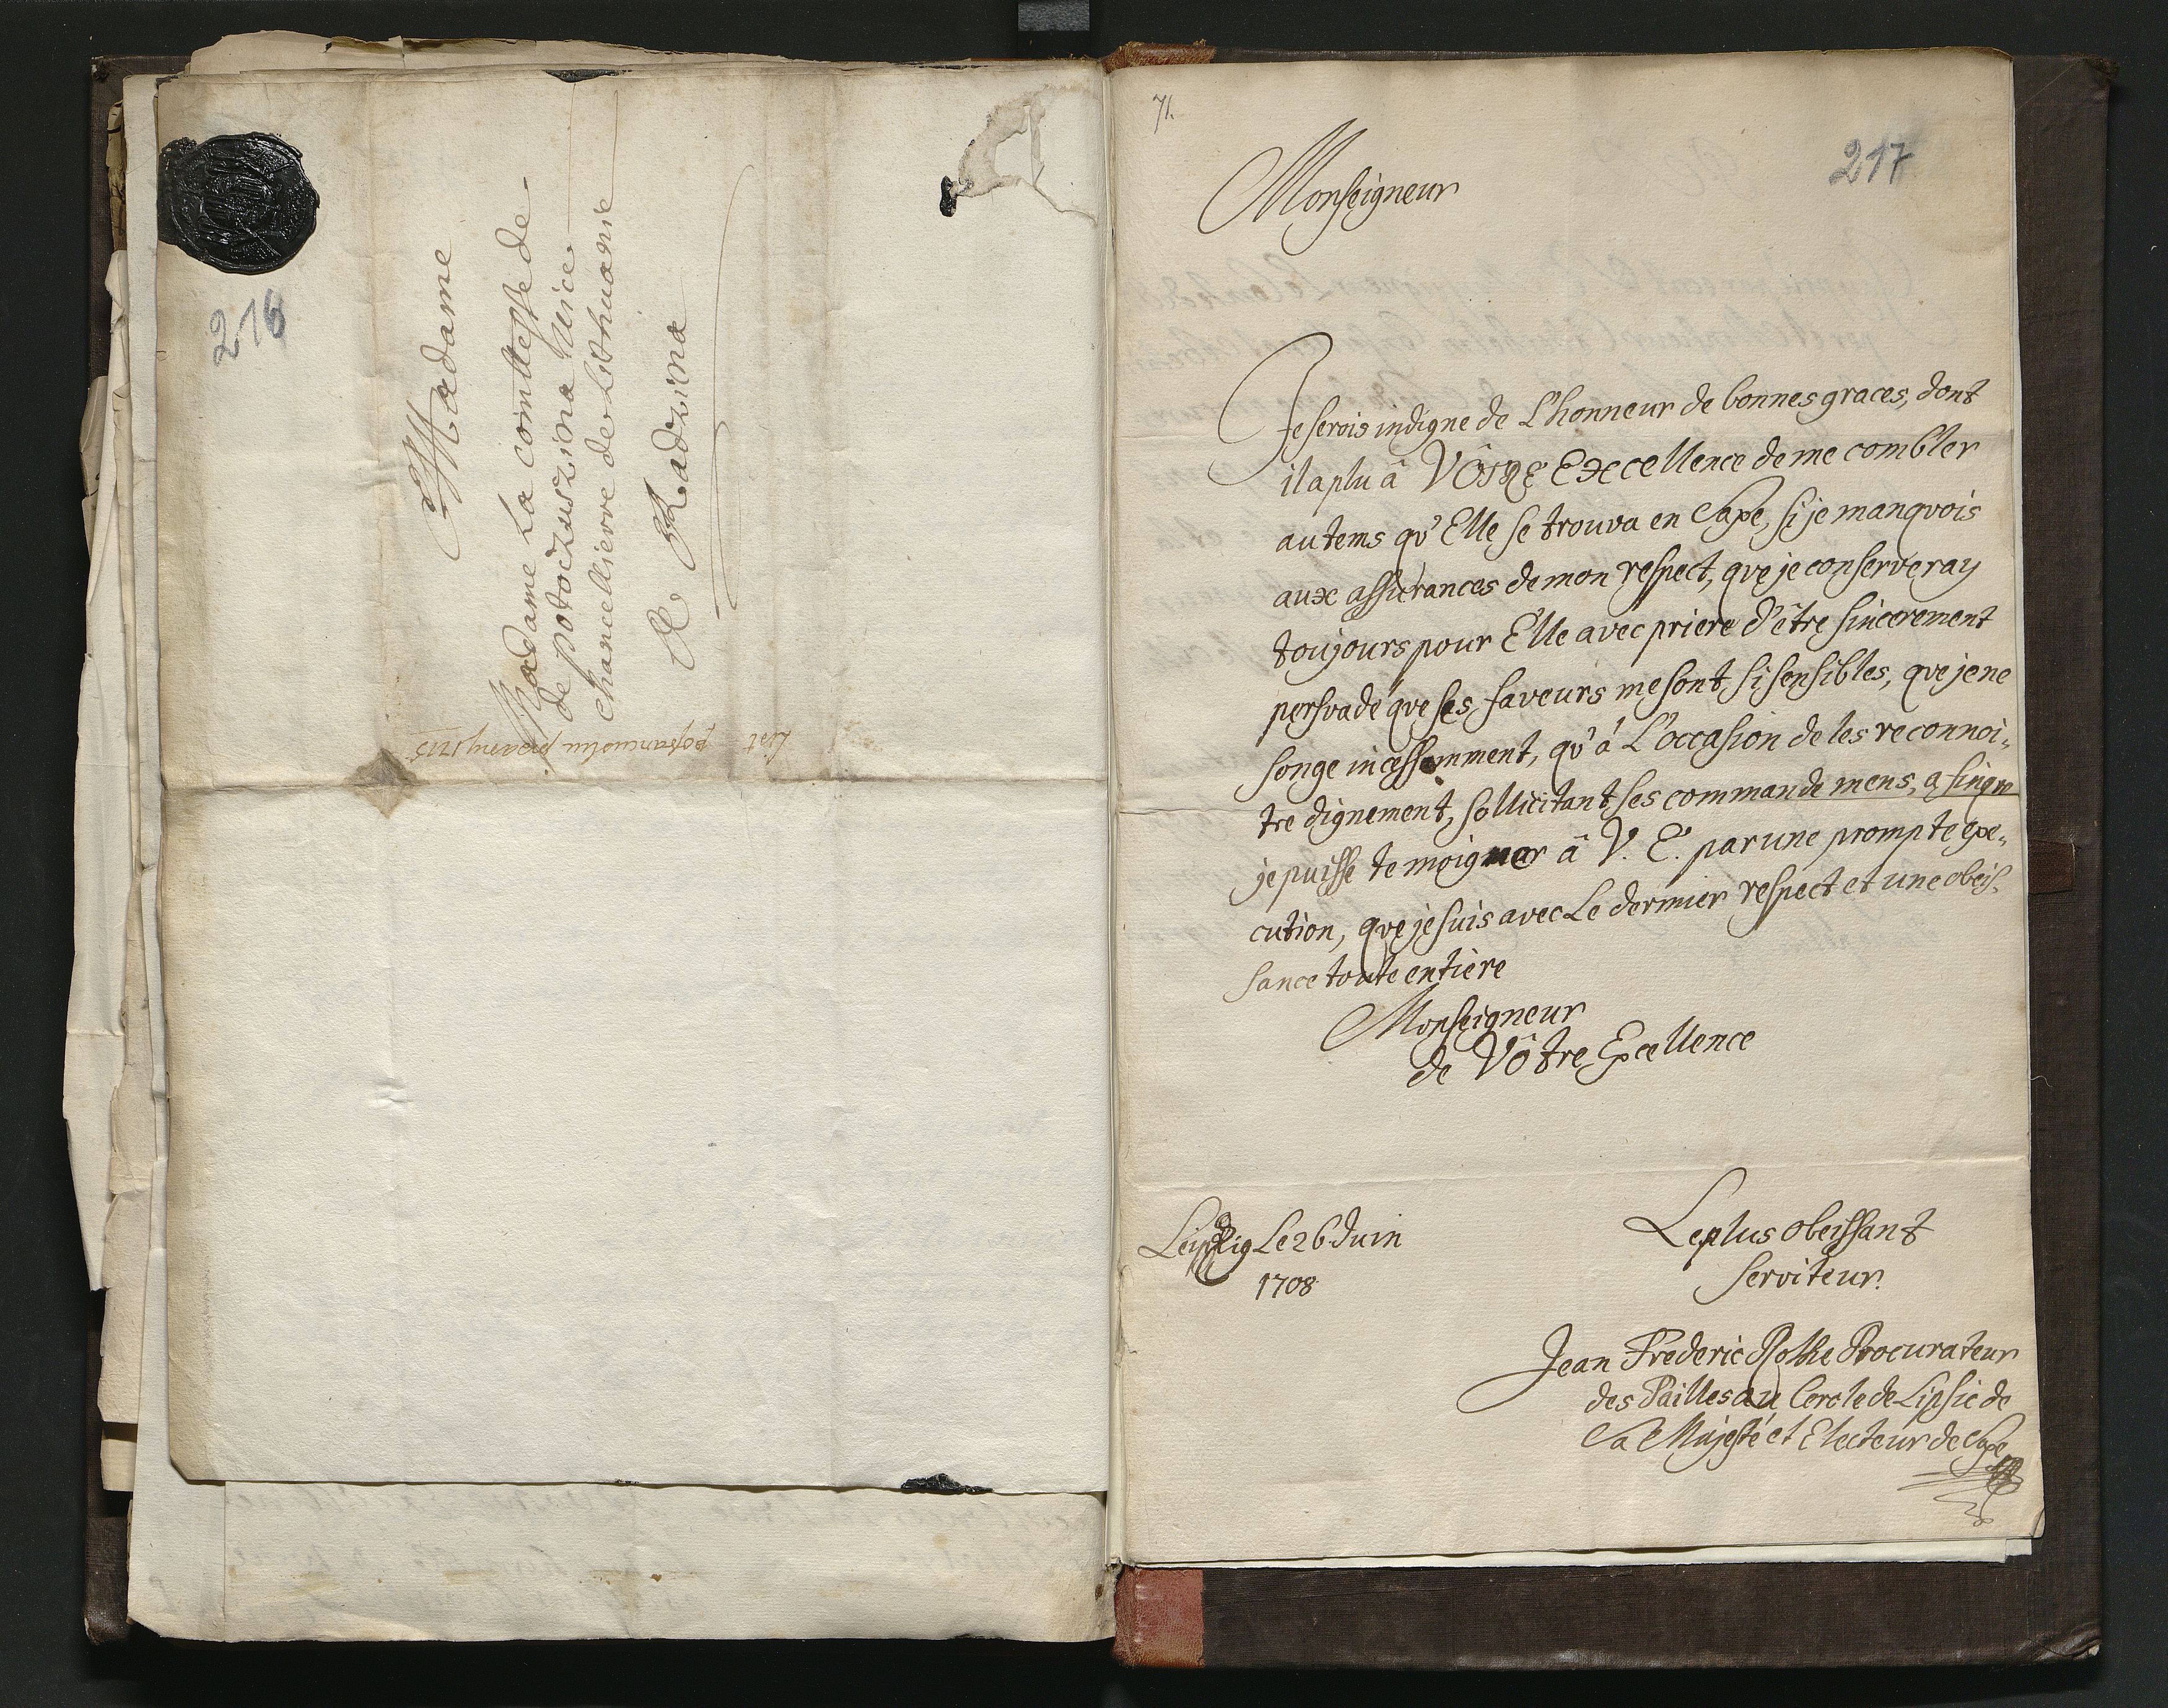 216
Madame
Madame La comtesse de
de Potoczuszina Vice
chancellierre de Lithuanie
A Radzina
List
pisany 1715
71.
217
Monseigneur
Je serois indigne de L'honneur de bonnes graces, dont
il a plu â VôTRE Excellence de me combler
au tems qu'Elle se trouva en Saxe, si je manquois
aux assurances de mon respect, que je conserveray
toujours pour Elle avec priere d'être sincerement
persuadé que ses faveurs me sont si sensibles, que je ne
songe incessamment, qu'á L'occasion de les reconnoi-
tre dignement, sollicitant ses commandemens, a fin que
je puisse temoigner â V. E. par une prompte exe-
cution, que je suis avec Le dernier respect et une obeis-
sance toute entiere
Monseigneur
de Vôtre Excellence
Leipzig Le 26 Juin
1708
Le plus obeissant
serviteur.
Jean Frederic Rothe Procurateur
des Tailles au Cercle de Lipsic de
Sa Majesté et Electeur de Saxe